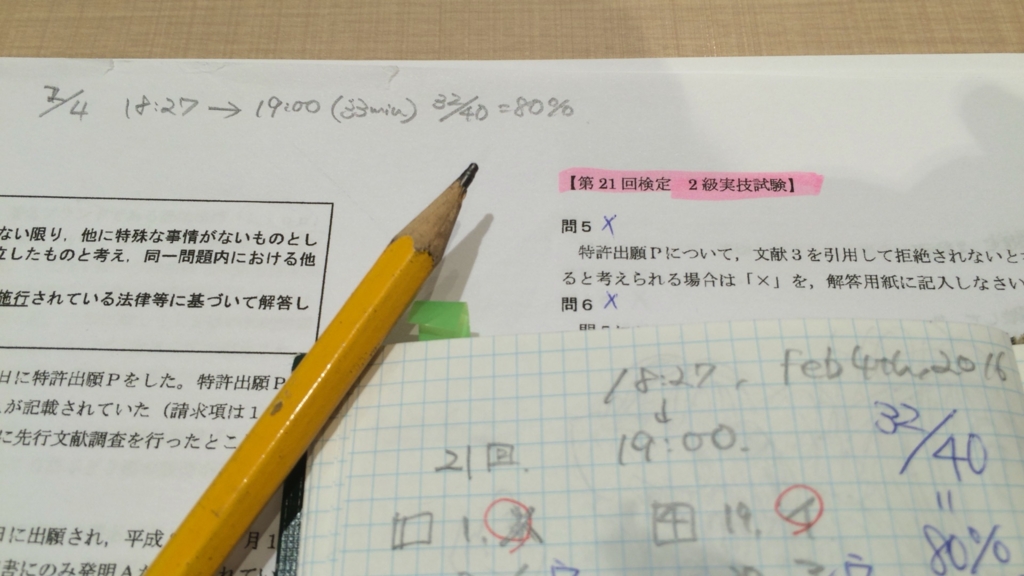 2/4 18:27 → 19:00 (33min) 32/40 = 80%
【第21回検定 2級実技試験】
問5 ×
特許出願Pについて，文献3を引用して拒絶されないと
ると考えられる場合は「×」を，解答用紙に記入しなさい
問6 ×
ない限り，他に特殊な事情がないものとし
立したものと考え，同一問題内における他
施行されている法律等に基づいて解答し
日に特許出願Pをした。特許出願P
が記載されていた（請求項は1
に先行文献調査を行ったとこ
日に出願され，平成
月1
書にのみ発明A
18:27, Feb 4th, 2016
↓
19:00.
32/40
=
80%
21回.
1.
19. イ